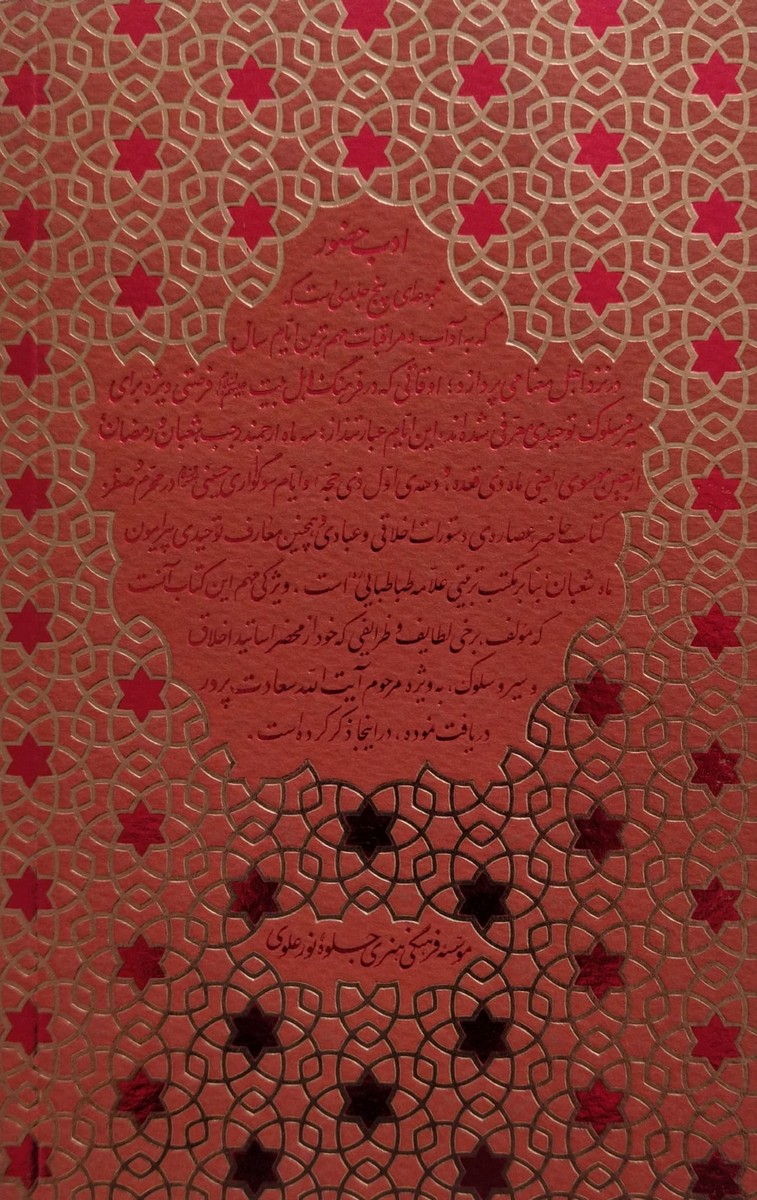 ادب حضور
مجموعه‌ای پنج جلدی است که
که به آداب و مراقبات مهم‌ترین ایام سال
در نزد اهل معنا می‌پردازد؛ اوقاتی که در فرهنگ اهل بیت علیهم‌السلام فرصتی ویژه برای
سیر و سلوک توحیدی معرفی شده‌اند. این ایام عبارتند از: سه ماه ارجمند رجب، شعبان و رمضان؛
اربعین موسوی یعنی ماه ذی قعده و دهه‌ی اول ذی حجه؛ و ایام سوگواری حسینی در محرم و صفر.
کتاب حاضر عصاره‌ی دستورات اخلاقی و عبادی و همچنین معارف توحیدی پیرامون
ماه شعبان بنا بر مکتب تربیتی علامه طباطبایی است. ویژگی مهم این کتاب آنست
که مولف برخی لطایف و ظرایفی که خود از محضر اساتید اخلاق
و سیر و سلوک، به ویژه مرحوم آیت الله سعادت پرور
دریافت نموده، در اینجا ذکر کرده است.
موسسه فرهنگی هنری جلوهٔ نور علوی